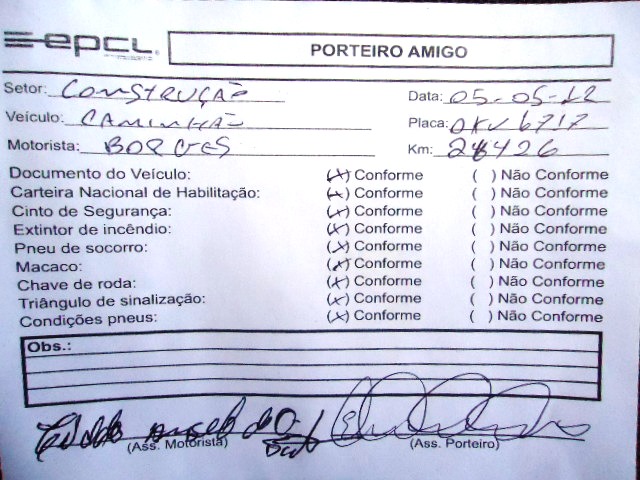 epcl
PORTEIRO AMIGO
Setor: CONSTRUÇÃO Data: 05-05-12
Veículo: CAMINHÃO Placa: OKV 6717
Motorista: BORGES Km: 28426
Documento do Veículo: (x) Conforme ( ) Não Conforme
Carteira Nacional de Habilitação: (x) Conforme ( ) Não Conforme
Cinto de Segurança: (x) Conforme ( ) Não Conforme
Extintor de incêndio: (x) Conforme ( ) Não Conforme
Pneu de socorro: (x) Conforme ( ) Não Conforme
Macaco: (x) Conforme ( ) Não Conforme
Chave de roda: (x) Conforme ( ) Não Conforme
Triângulo de sinalização: (x) Conforme ( ) Não Conforme
Condições pneus: (x) Conforme ( ) Não Conforme
Obs.:
(Ass. Motorista) (Ass. Porteiro)